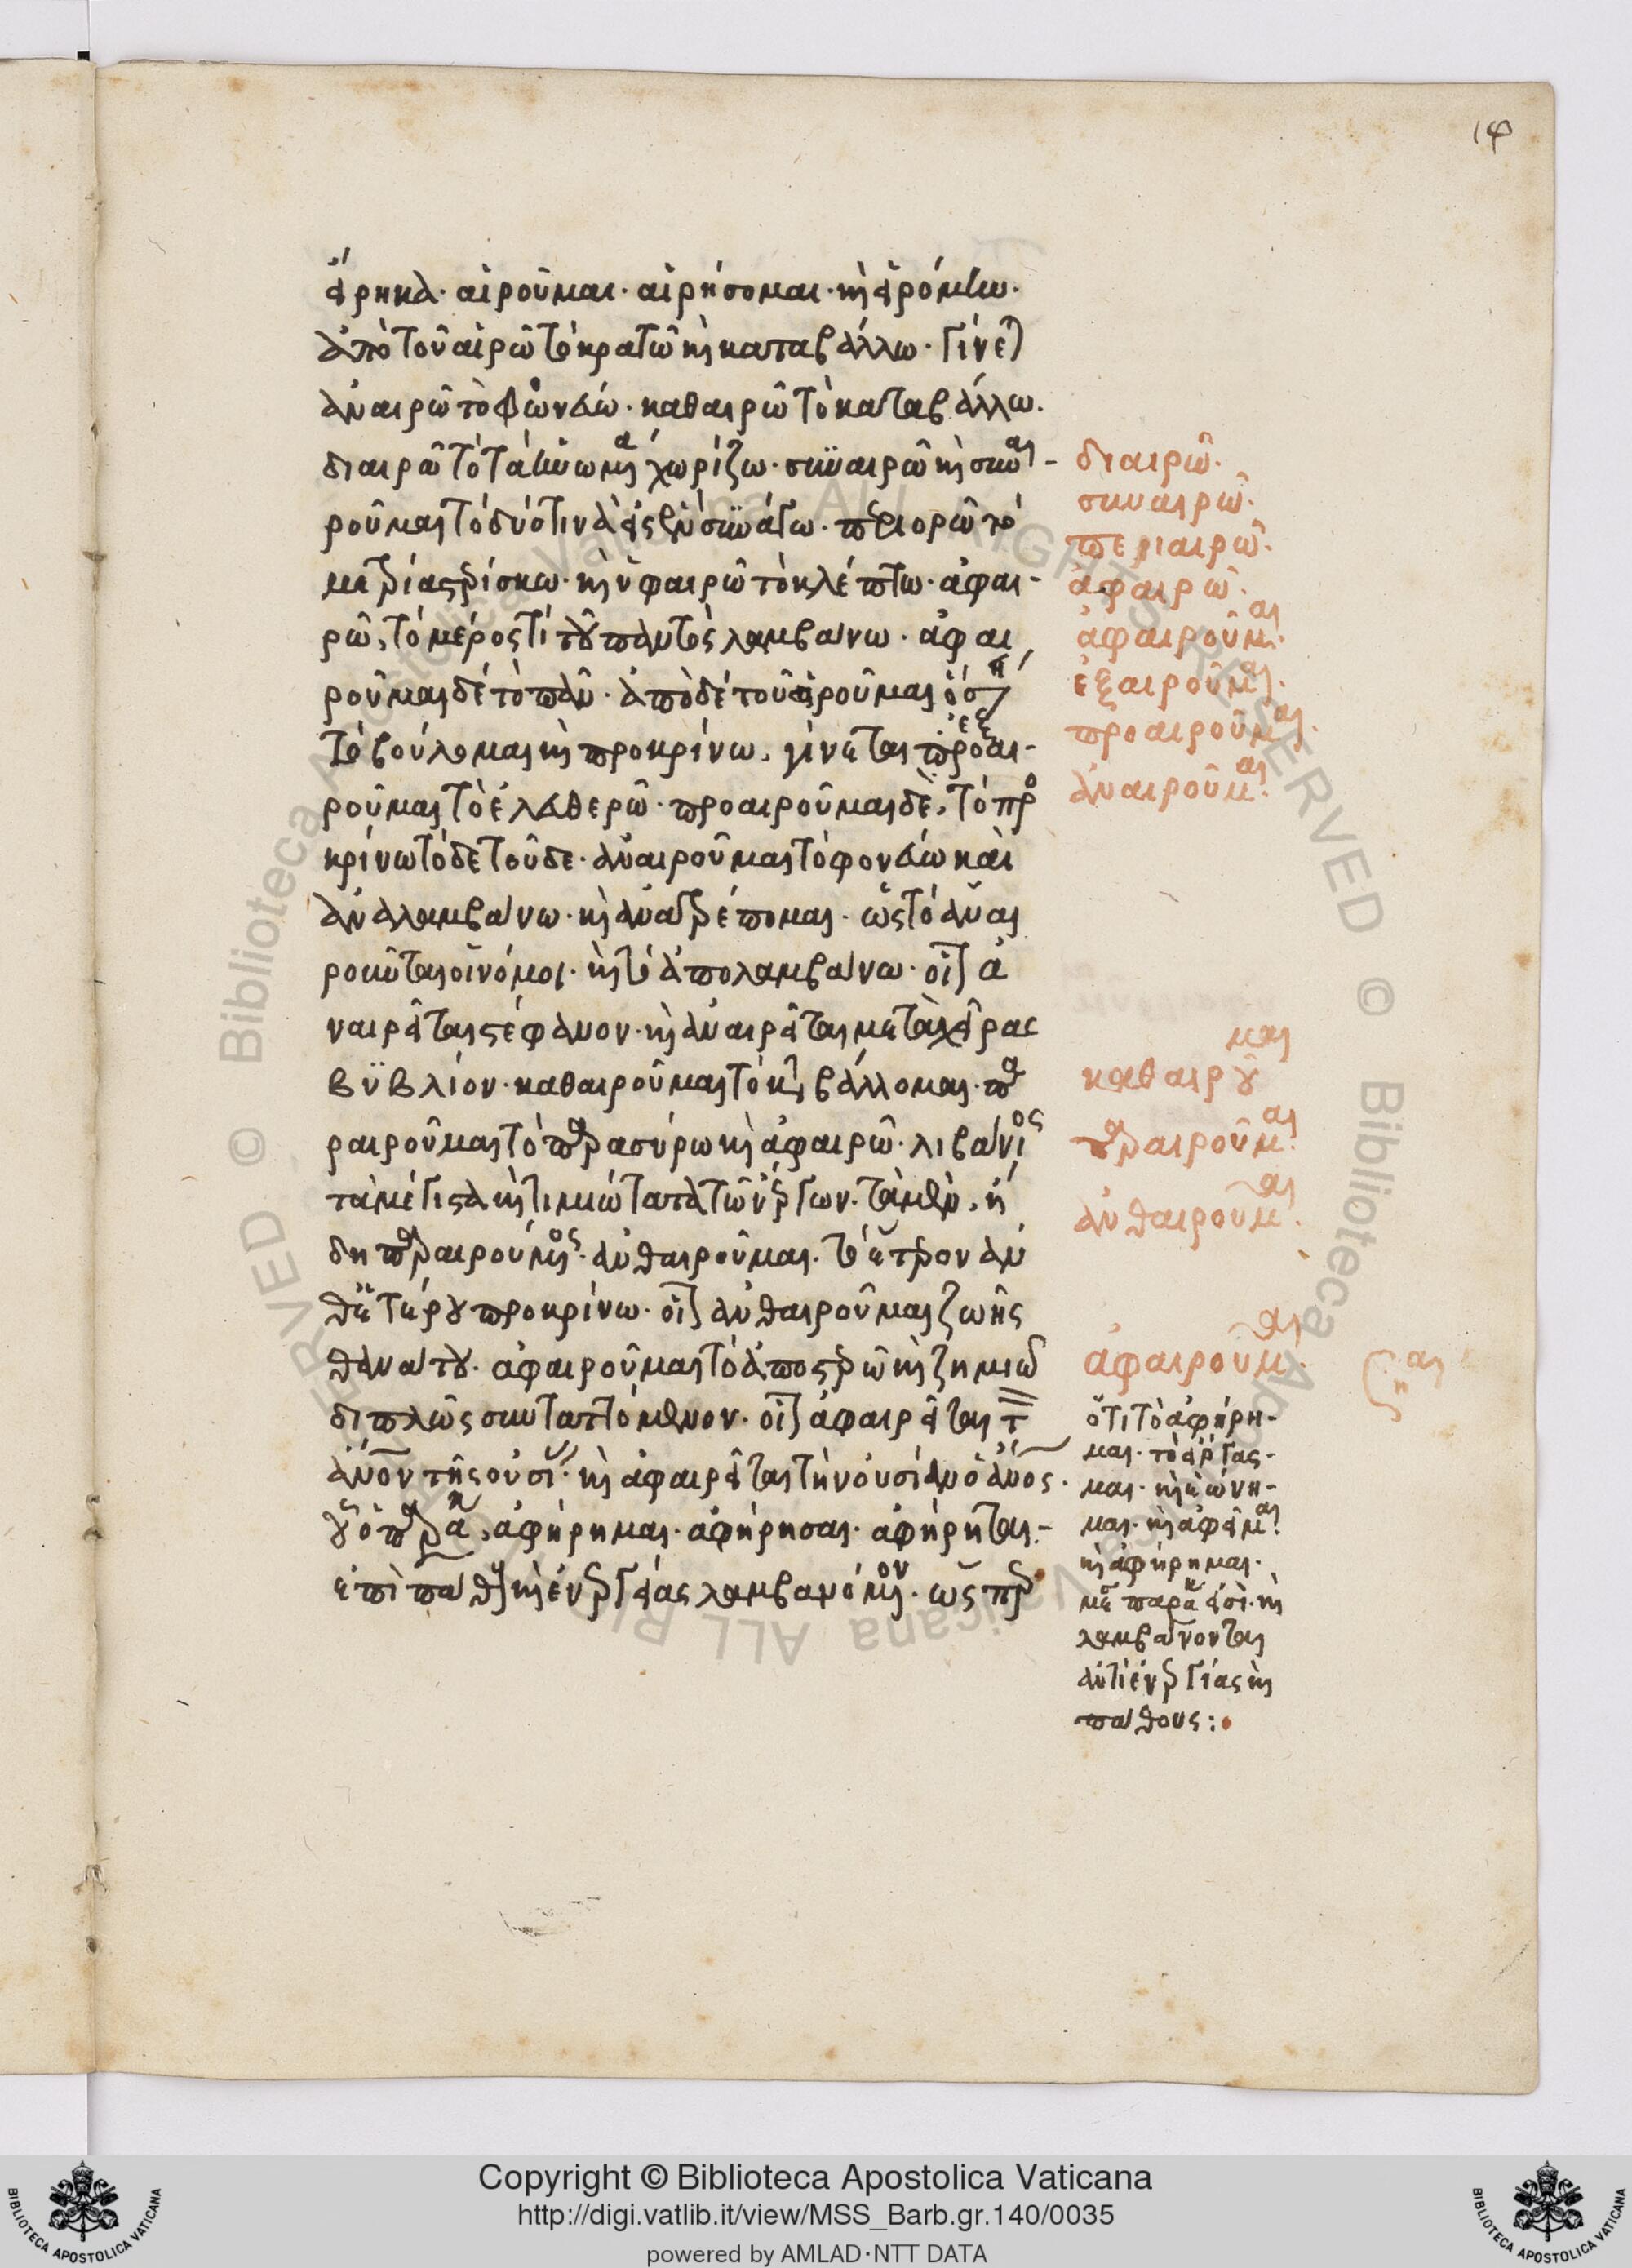 εἴρηκα· αἱροῦμαι· αἱρήσομαι· κὶ εἱρόμην·
ἀπὸ τοῦ αἱρῶ τὸ κρατῶ κὶ καταβάλλω· γίνε
ἀναιρῶ τὸ φονεύω· καθαιρῶ τὸ καταβάλλω.
διαιρῶ τὸ τὰ χωρίζω· συναιρῶ κὶ συναι-
ροῦμαι τὸ δύό τινὰ εἰς ἓν συνάγω· περιορῶ τὸ
κὶ ὑφαιρῶ τὸ κλέπτω· ἀφαι-
ρῶ, τὸ μέρος τί τοῦ παντὸς λαμβάνω· ἀφαι
ροῦμαι δέ τὸ πᾶν· ἀπὸ δέ τοῦ αἱροῦμαι
τὸ βούλομαι κὶ προκρίνω, γίνεται ἐξαι-
ροῦμαι τὸ ἐλευθερῶ· προαιροῦμαι δὲ, τὸ προ
κρίνω τόδε τοῦδε· ἀναιροῦμαι τὸ φονεύω καὶ
ἀναλαμβάνω· κὶ ἀνατρέπομαι· ὡς τὸ ἀναι
ροῦνται οἱ νόμοι· κὶ τὸ ἀπολαμβάνω· οἷον ἀ
ναιρεῖται στέφανον· κὶ ἀναιρεῖται μετὰ χεῖρας
βυβλίον· καθαιροῦμαι τὸ κταβάλλομαι· πα
ραιροῦμαι τὸ παρασύρω κὶ ἀφαιρῶ· λιβάνιος
τὰ μέγιστα κὶ τιμιώτατα τῶν ἔργων· τὰ μὲν, ἤ
δη παραιρούμενος· ἀνθαιροῦμαι· τὸ ἕτερον ἀν
θ' ἑτέρου προκρίνω· οἷον ἀνθαιροῦμαι ζωῆς
θάνατον· ἀφαιροῦμαι τὸ ἀποστερῶ κὶ ζημιῶ
διπλῶς συνταττόμενον· οἷον ἀφαιρεῖται τ
ἀνον τῆς οὐσί· κὶ ἀφαιρεῖται τὴν οὐσίαν ὁ ἄνος·
οὗ ὁ παρα, ἀφήρημαι· ἀφήρησαι· ἀφήρηται·-
ἐπὶ πάθους κὶ ἐνεργείας λαμβανόμενον· ὥσπερ
διαιρῶ·
συναιρῶ·
περιαιρῶ·
ἀφαιρῶ·
ἀφαιροῦμαι·
ἐξαιροῦμαι·
προαιροῦμαι·
ἀναιροῦμαι·
καθαιροῦμαι
παραιροῦμαι·
ἀνθαιροῦμαι·
ἀφαιροῦμαι·
ὅτι τὸ ἀφήρη-
μαι· τὸ εἴργας-
μαι· κὶ ἐώνη-
μαι· κὶ ἀφεῖμαι·
κὶ ἀφήρημαι·
παρα εἰσὶ· κὶ
λαμβάνονται
ἀντὶ ἐνεργίας κὶ
πάθους:
Copyright © Biblioteca Apostolica Vaticana
http://digi.vatlib.it/view/MSS_Barb.gr.140/0035
powered by AMLAD·NTT DATA